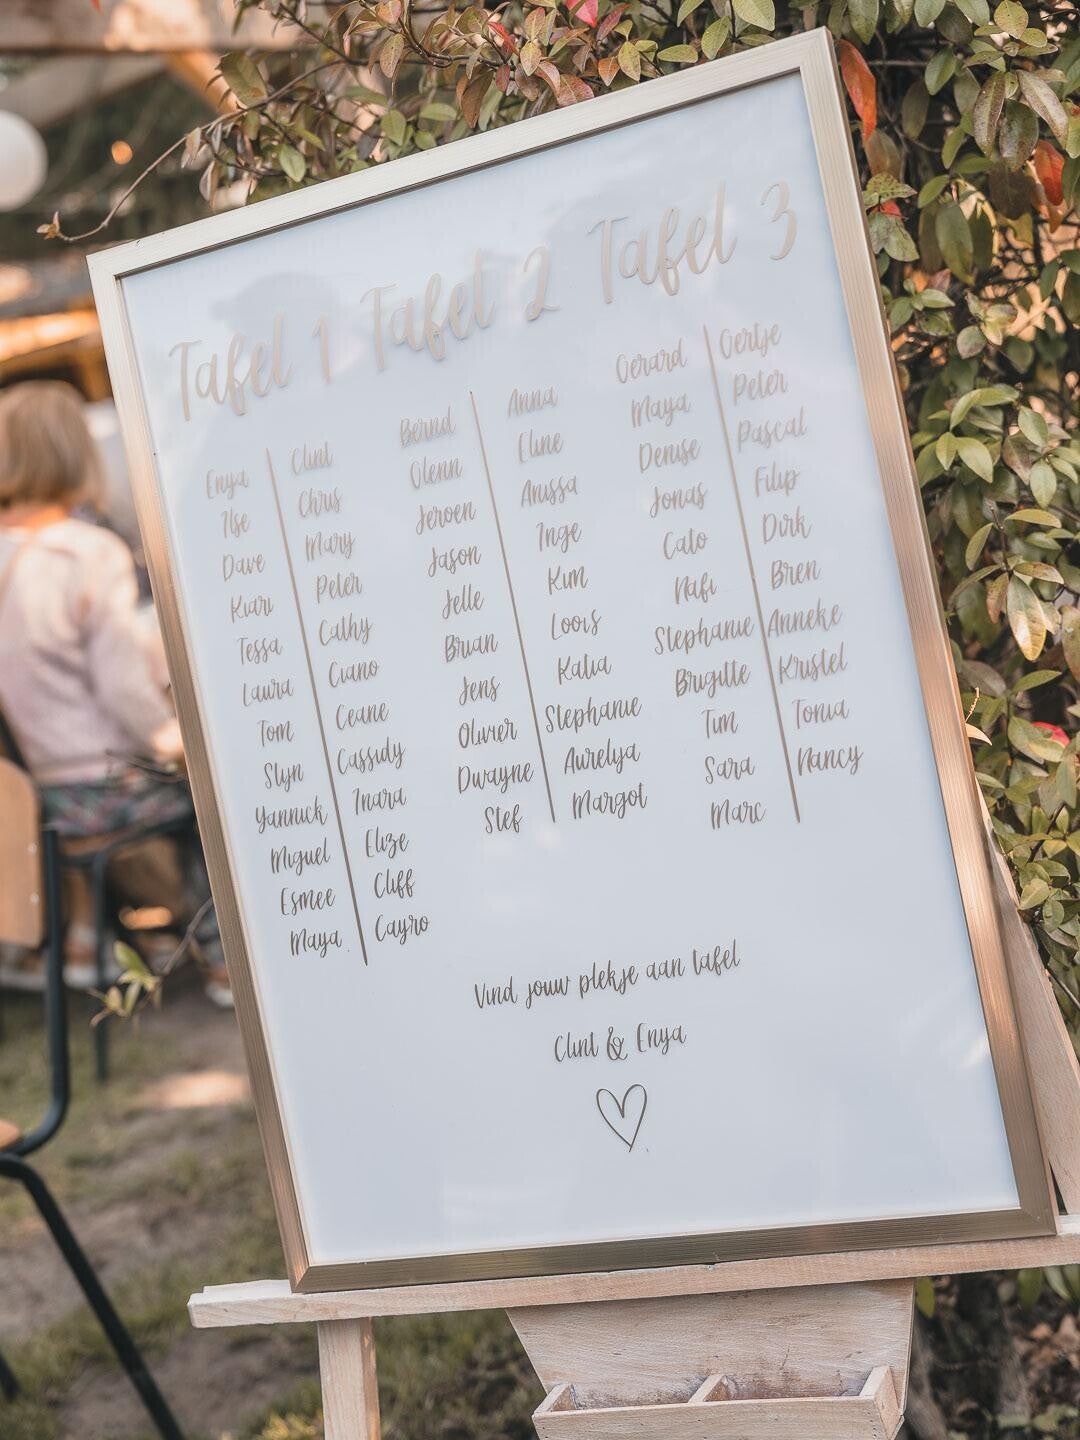 Tafel 1
Enya
Ilse
Dave
Kiari
Tessa
Laura
Tom
Slyn
Yannick
Miguel
Esmee
Maya
Clint
Chris
Mary
Peter
Cathy
Ciano
Ceane
Cassidy
Inara
Elize
Cliff
Cayro
Tafel 2
Bernd
Glenn
Jeroen
Jason
Jelle
Brian
Jens
Olivier
Dwayne
Stef
Anna
Eline
Anissa
Inge
Kim
Loois
Katia
Stephanie
Aurelya
Margot
Tafel 3
Gerard
Maya
Denise
Jonas
Cato
Nafi
Stephanie
Brigitte
Tim
Sara
Marc
Gertje
Peter
Pascal
Filip
Dirk
Bren
Anneke
Kristel
Tonia
Nancy
Vind jouw plekje aan tafel
Clint & Enya